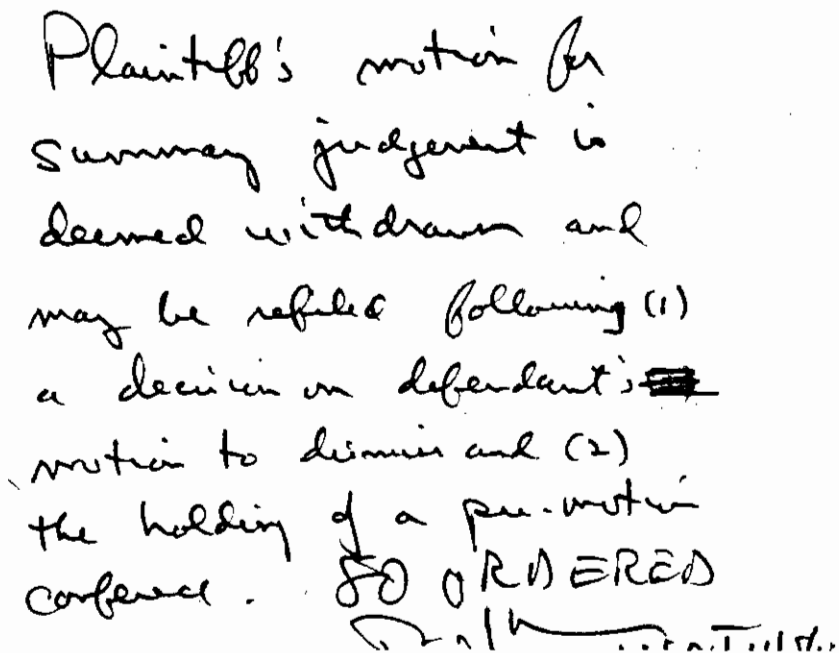 Plaintiff's motion for
summary judgement is
deemed withdrawn and
may be refiled following (1)
a decision on defendant's
motion to dismiss and (2)
the holding of a pre-motion
conference. SO ORDERED